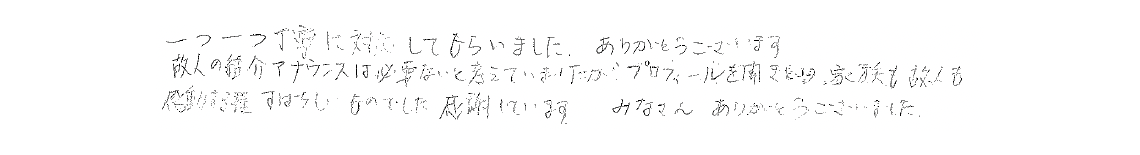 一つ一つ丁寧に対応してもらいました。ありがとうございます
故人の紹介アナウンスは必要ないと考えていましたが、プロフィールを聞き 家族も故人も
感動する程 すばらしいものでした 感謝しています みなさん ありがとうございました。